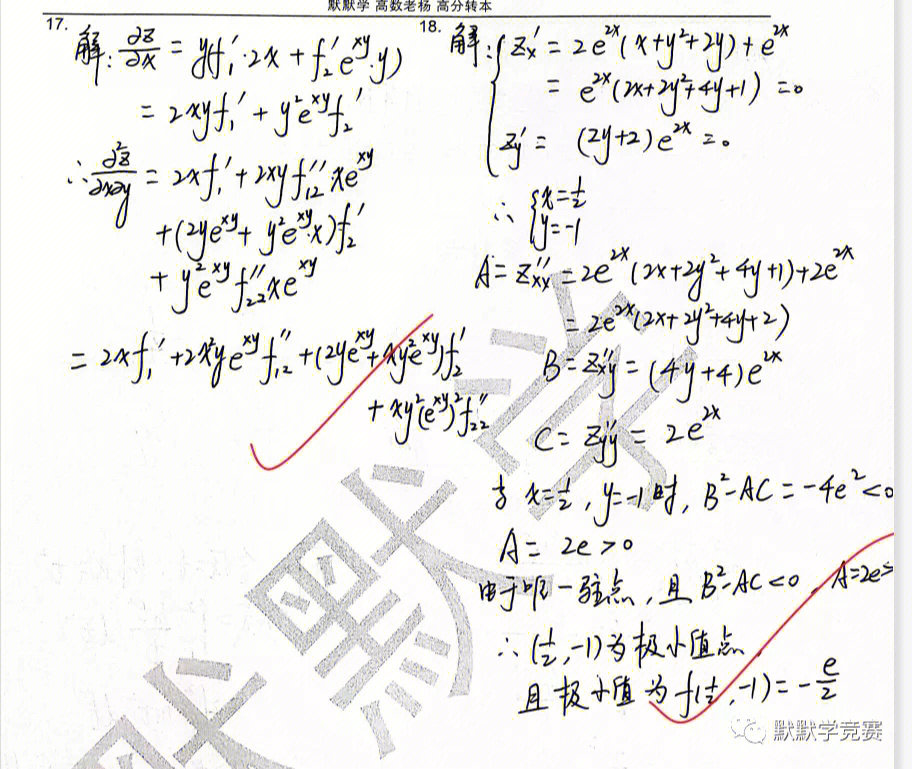 默默学 高数老杨 高分转本
17.
解: ∂z/∂x = y(f₁′·2x + f₂′e^{xy}·y)
= 2xyf₁′ + y²e^{xy}f₂′
∴ ∂²z/∂x∂y = 2xf₁′ + 2xyf₁₂″·xe^{xy}
+(2ye^{xy} + y²e^{xy}·x)f₂′
+ y²e^{xy}f₂₂″xe^{xy}
= 2xf₁′ + 2x²ye^{xy}f₁₂″ + (2ye^{xy} + xy²e^{xy})f₂′
+ xy²(e^{xy})²f₂₂″
18.
解: { Zx′ = 2e^{2x}(x+y²+2y) + e^{2x}
= e^{2x}(2x+2y²+4y+1) = 0
Zy′ = (2y+2)e^{2x} = 0
∴ { x=1/2
y=-1
A = Zxx″ = 2e^{2x}(2x+2y²+4y+1)+2e^{2x}
= 2e^{2x}(2x+2y²+4y+2)
B = Zxy″ = (4y+4)e^{2x}
C = Zyy″ = 2e^{2x}
当 x=1/2, y=-1时, B²-AC = -4e² <0
A = 2e >0
由于唯一驻点, 且 B²-AC<0, A=2e>
∴ (1/2, -1)为极小值点
且极小值为 f(1/2, -1) = -e/2
默默学
默默学竞赛